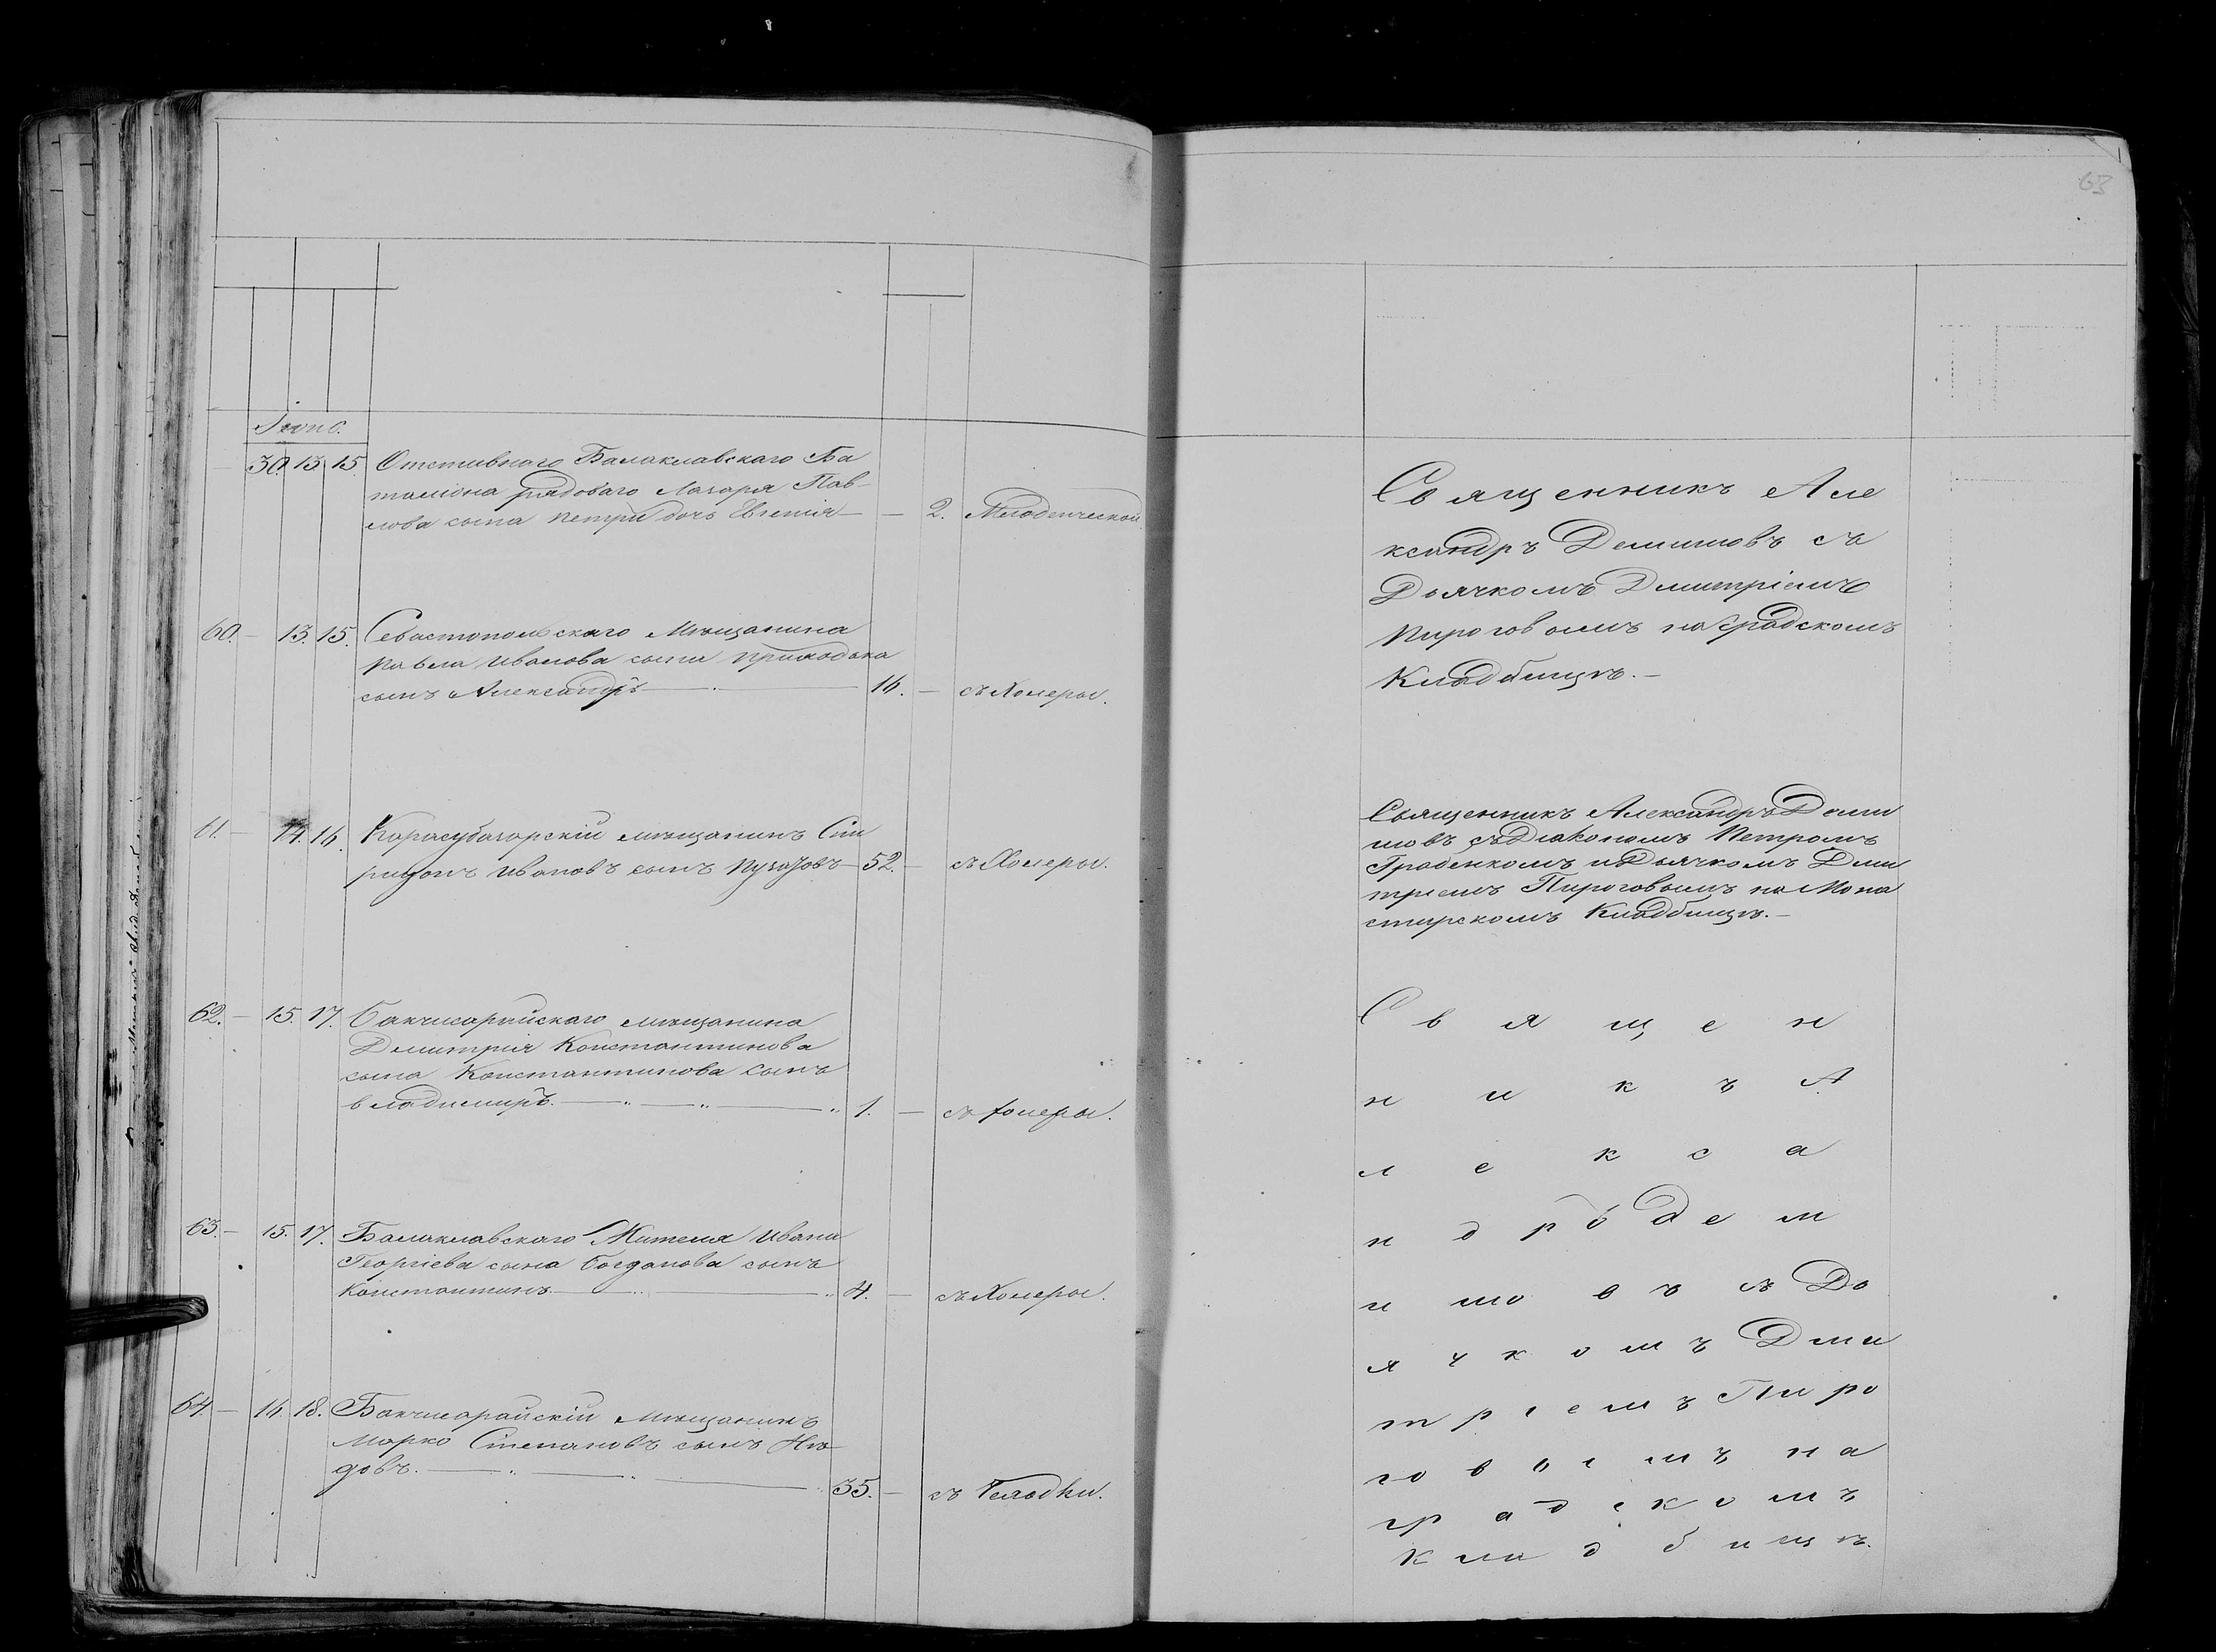 63
Іюнь.
30. 13. 15. Отставнаго Балаклавскаго Ба
таліона рядоваго Лазаря Пав-
лова сына Петри дочь Евгенія — — 2. Младенческой.
60. — 13. 15. Севастопольскаго Мѣщанина
Павла Иванова сына Приходька
сынъ Александръ — 16. — съ Холеры.
61. — 14. 16. Карасубазарскій мѣщанинъ Спи
ридонъ Ивановъ сынъ — 52. — съ Холеры.
62. — 15. 17. Бахчисарайскаго мѣщанина
Димитрія Константинова
сына Константинова сынъ
Владимиръ. — 1. — съ холеры.
63. — 15. 17. Балаклавскаго Жителя Ивана
Георгіева сына Богданова сынъ
Константинъ — 4. — съ Холеры.
64. — 16. 18. Бахчисарайскій Мѣщанинъ
Марко Степановъ сынъ
довъ. — 35. — съ
Священникъ Але
ксандръ Демишовъ съ
Дьячкомъ Димитріемъ
Пироговымъ на Градскомъ
Кладбищѣ. —
Священникъ Александръ Деми
шовъ съ Діакономъ Петромъ
Грабенкомъ и Дьячкомъ Дми
тріемъ Пироговымъ на Мона
стырскомъ Кладбищѣ. —
Священ
никъ А
лекса
ндръ Дем
ишовъ съ Дь
ячкомъ Дми
тріемъ Пиро
говымъ на
градскомъ
Кладбищѣ.